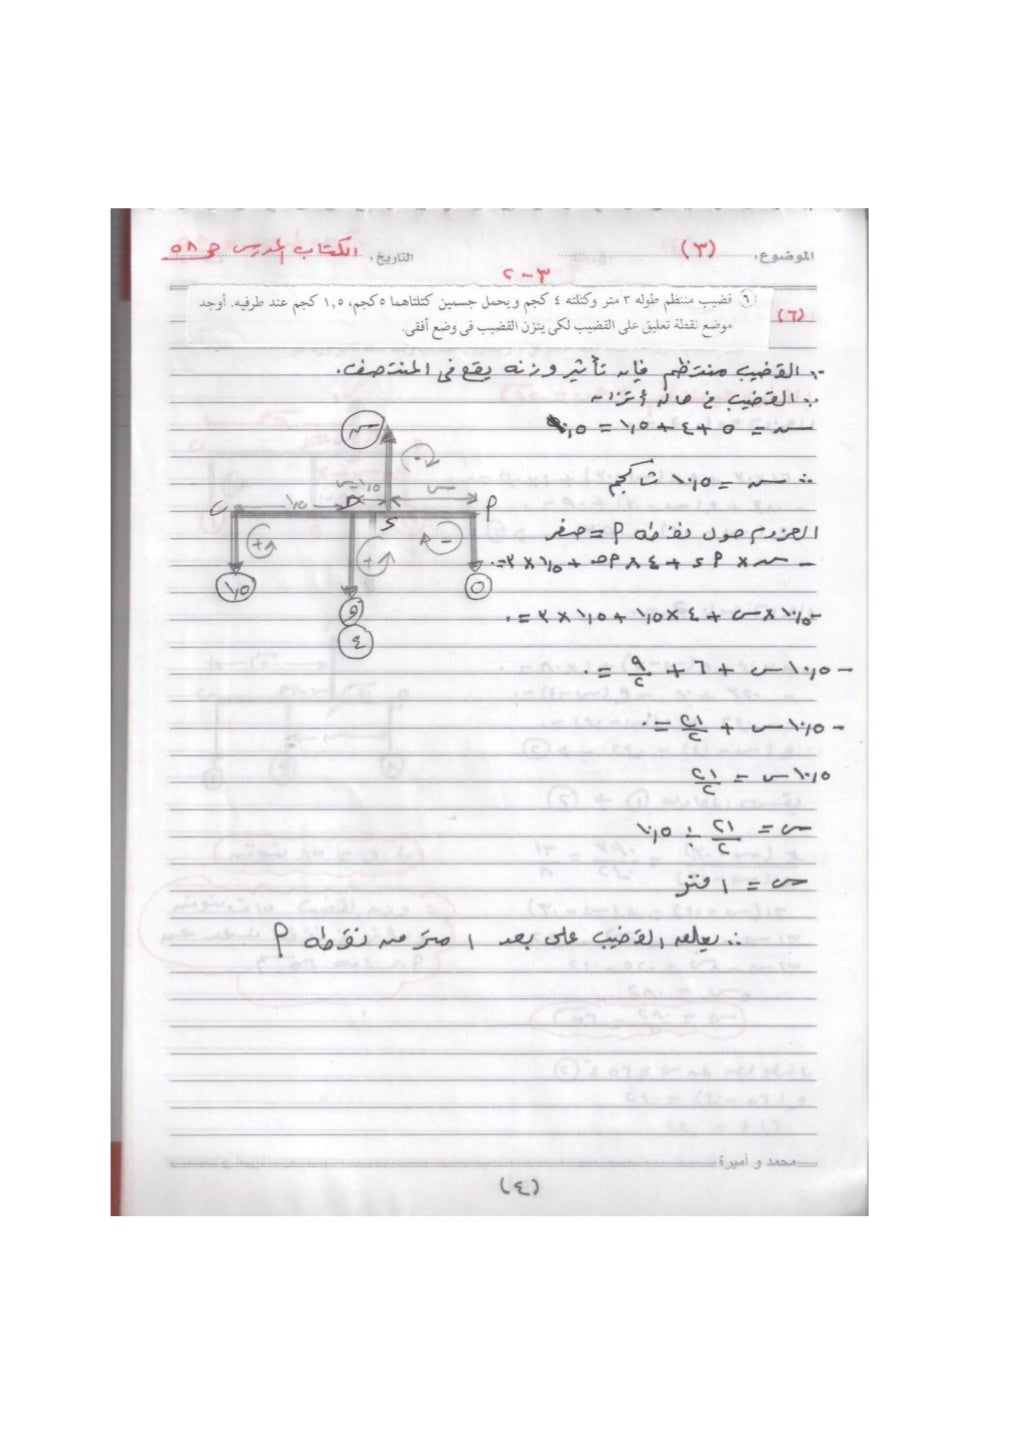 الموضوع: (٣) التاريخ: الكتاب المدرسى ص ٥٨
٣-٢
(٦) ٦ قضيب منتظم طوله ٣ متر وكتلته ٤ كجم ويحمل جسمين كتلتاهما ٥ كجم، ١,٥ كجم عند طرفيه. أوجد
موضع نقطة تعليق على القضيب لكى يتزن القضيب فى وضع أفقى.
∵ القضيب منتظم فإن تأثير وزنه يقع فى المنتصف.
∵ القضيب فى حالة أتزان
س = ٥ + ٤ + ١,٥ = ١٠,٥
∴ س = ١٠,٥ ث كجم
العزوم حول نقطة م = صفر
- س × م ء + ٤ × م ح + ١,٥ × ٣ = ٠
- ١٠,٥ × س + ٤ × ١,٥ + ١,٥ × ٣ = ٠
- ١٠,٥ س + ٦ + ٩/٢ = ٠
- ١٠,٥ س + ٢١/٢ = ٠
١٠,٥ س = ٢١/٢
س = ٢١/٢ ÷ ١٠,٥
س = ١ متر
∴ يعلق القضيب على بعد ١ متر من نقطة م
س
١,٥
ء
١,٥
٥
و
٤
محمد و أميرة
(٤)